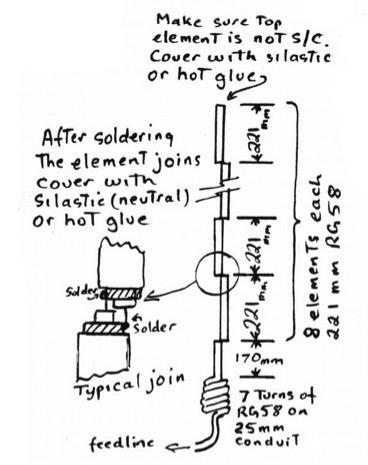 Make sure Top
element is not S/C.
Cover with silastic
or hot glue
After soldering
The element joins
cover with
Silastic (neutral)
or hot glue
221 mm
221 mm
221 mm
8 elements each
221 mm RG58
Solder
Solder
Typical join
170mm
7 Turns of
RG58 on
25mm
conduit
feedline